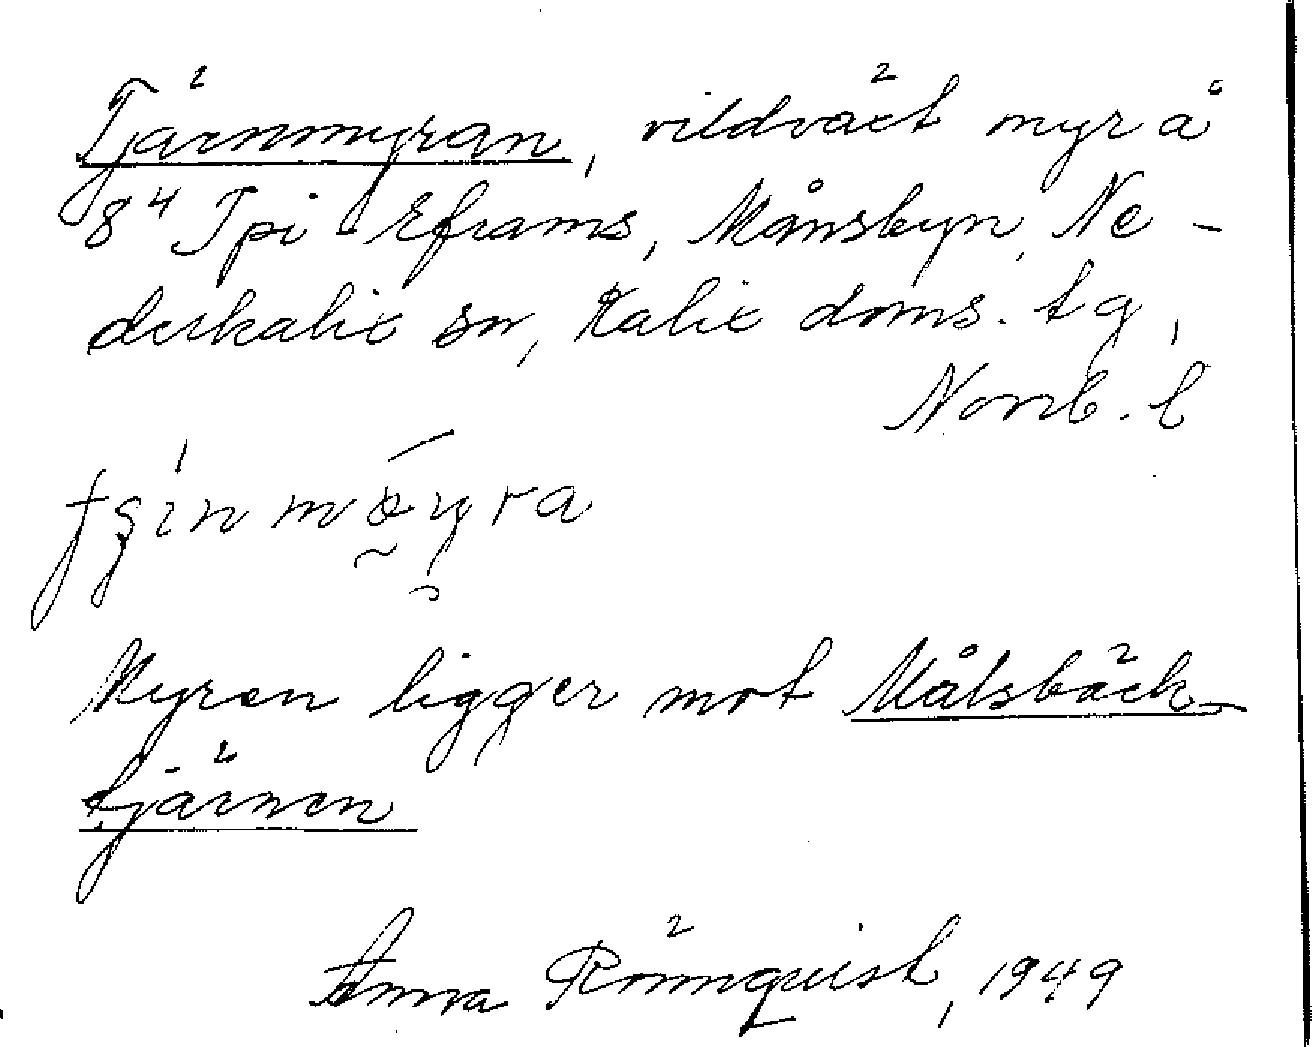 Tjärnmyran, vildväxt myr å
8⁴ Tpi Eframs, Månsbyn, Ne-
derkalix sn, Kalix doms. tg,
Norrb. l
Myren ligger mot Målsbäck-
tjärnen
Anna Rönnqvist, 1949